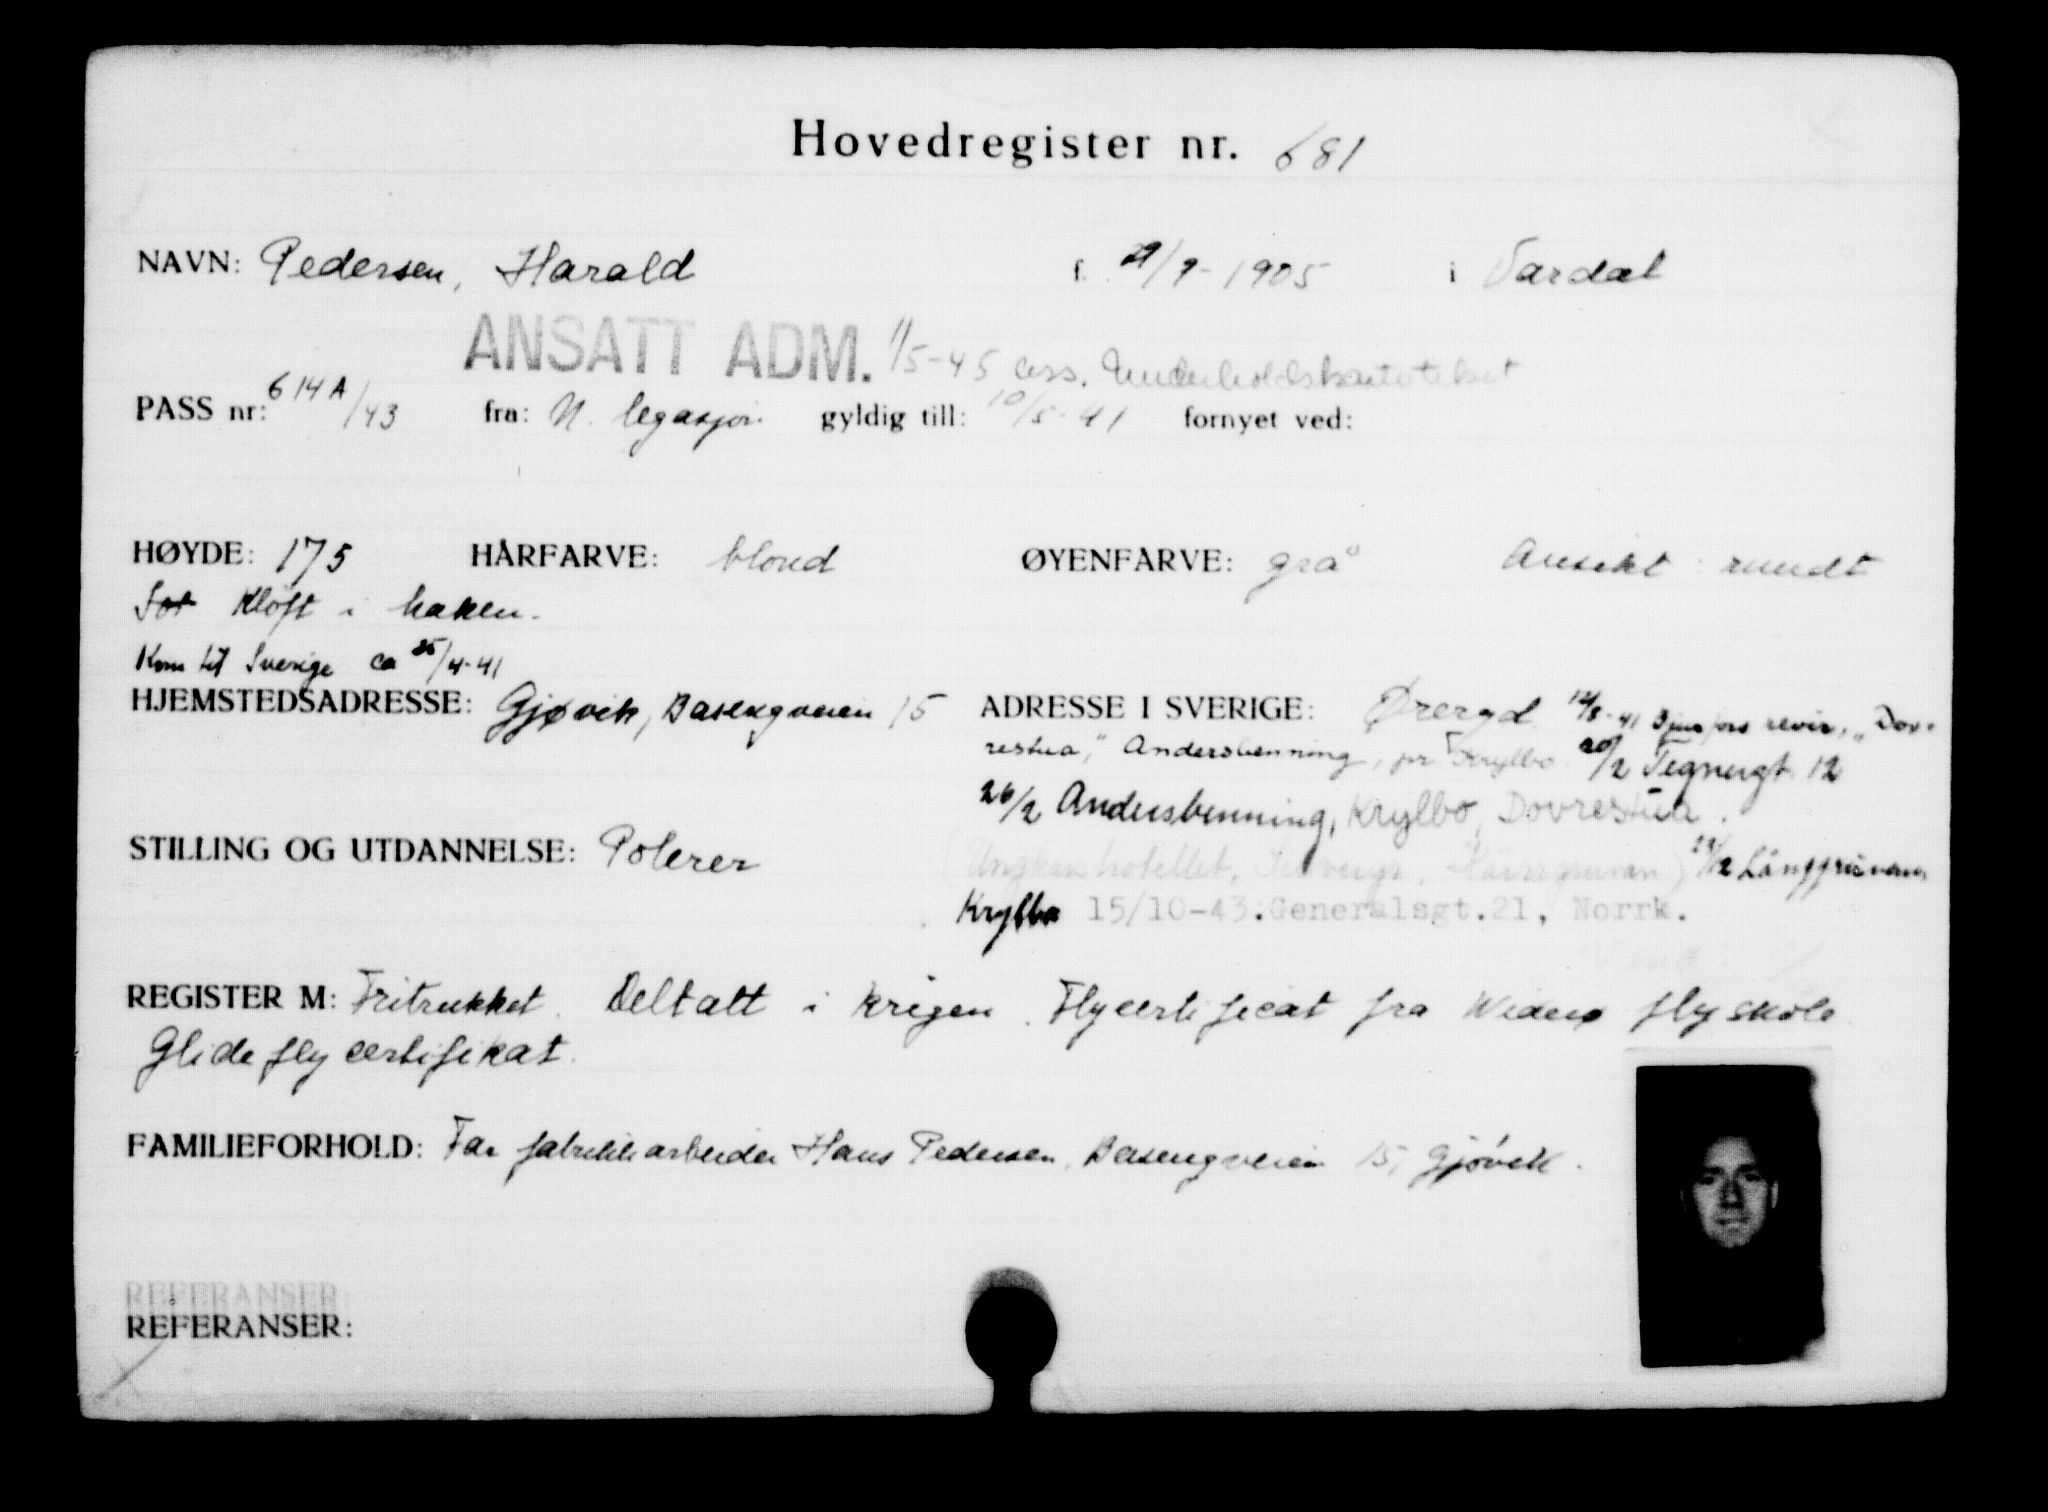 Hovedregister nr. 681
NAVN: Pedersen, Harald f. 29/9-1905 i Vardal
ANSATT ADM. 1/5-45 ass. Underholdskartoteket
PASS nr: 614A/43 fra: N. legasjon gyldig till: 10/8-41 fornyet ved:
HØYDE: 175 HÅRFARVE: blond ØYENFARVE: grå Ansikt: rundt
Kløft i haken.
Kom til Sverige ca 25/4-41
HJEMSTEDSADRESSE: Gjøvik, Bassengveien 15 ADRESSE I SVERIGE: Øreryd 12/8-41 revir, „Dov-
restua," Andersbenning, pr Krylbo 20/2 Tegnergt 12
26/2 Andersbenning, Krylbo, Dovrestua.
STILLING OG UTDANNELSE: Polerer
Krylbo 15/10-43. Generalsgt. 21, Norrk.
REGISTER M: Fritrukket. Deltatt i krigen. Flycertificat fra Widerø flyskole
Glidefly certifikat.
FAMILIEFORHOLD: Far fabrikkarbeider Hans Pedersen, Basengveien 15, Gjøvik.
REFERANSER
REFERANSER: